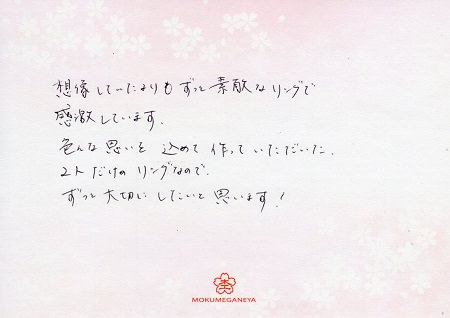 想像していたよりもずっと素敵なリングで
感激しています.
色んな思いを込めて作っていただいた.
2人だけのリングなので.
ずっと大切にしたいと思います!
MOKUMEGANEYA